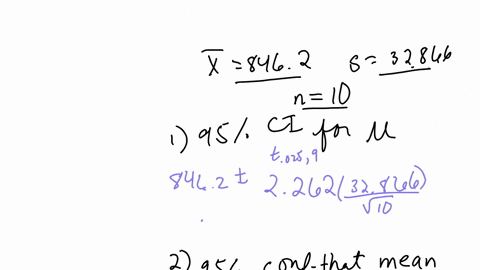 X̄ = 846.2   s = 32.866
n = 10
1) 95% CI for μ
t.025,9
846.2 ± 2.262(32.866/√10)
2) 95% conf. that mean